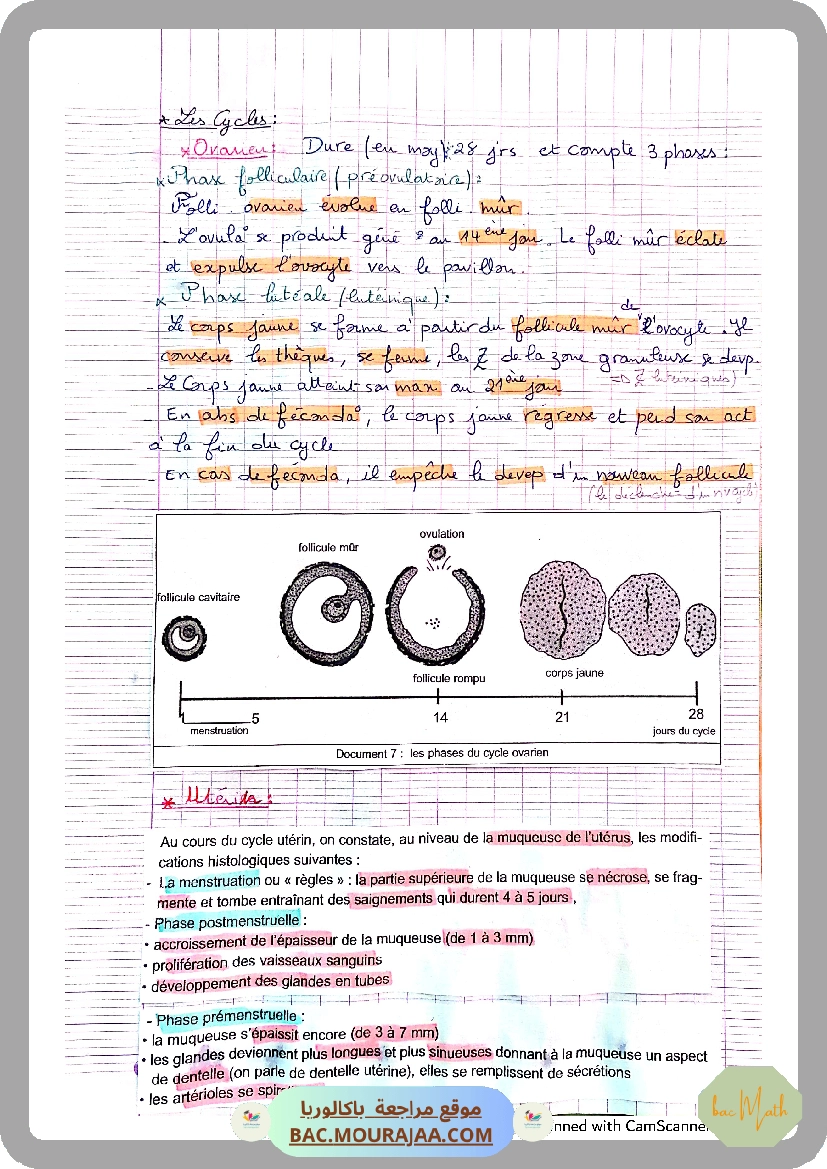 * Les Cycles :
* Ovarien : Dure (en moy) : 28 jrs et compte 3 phases :
* Phase folliculaire (préovulatoire) :
Folli ovarien évolue en folli mûr.
- L'ovula° se produit géné au 14ème jour. Le folli mûr éclate
et expulse l'ovocyte vers le pavillon.
* Phase lutéale (lutéinique) :
de
Le corps jaune se forme à partir du follicule mûr l'ovocyte. Il
conserve les thèques, se ferme, les Z de la zone granuleuse se devp.
- Le Corps jaune atteint son max au 21ème jour
=> Z lutéiniques)
- En abs de féconda°, le corps jaune régresse et perd son act
à la fin du cycle
- En cas de féconda, il empêche le devep d'un nouveau follicule
ovulation
follicule mûr
follicule cavitaire
follicule rompu
corps jaune
1 5 14 21 28
menstruation
jours du cycle
Document 7 : les phases du cycle ovarien
* Utérin :
Au cours du cycle utérin, on constate, au niveau de la muqueuse de l'utérus, les modifi-
cations histologiques suivantes :
- La menstruation ou « règles » : la partie supérieure de la muqueuse se nécrose, se frag-
mente et tombe entraînant des saignements qui durent 4 à 5 jours ,
- Phase postmenstruelle :
• accroissement de l'épaisseur de la muqueuse (de 1 à 3 mm)
• prolifération des vaisseaux sanguins
• développement des glandes en tubes
- Phase prémenstruelle :
• la muqueuse s'épaissit encore (de 3 à 7 mm)
• les glandes deviennent plus longues et plus sinueuses donnant à la muqueuse un aspect
de dentelle (on parle de dentelle utérine), elles se remplissent de sécrétions
• les artérioles se spir
موقع مراجعة باكالوريا
BAC.MOURAJAA.COM
nned with CamScanner
bac Math